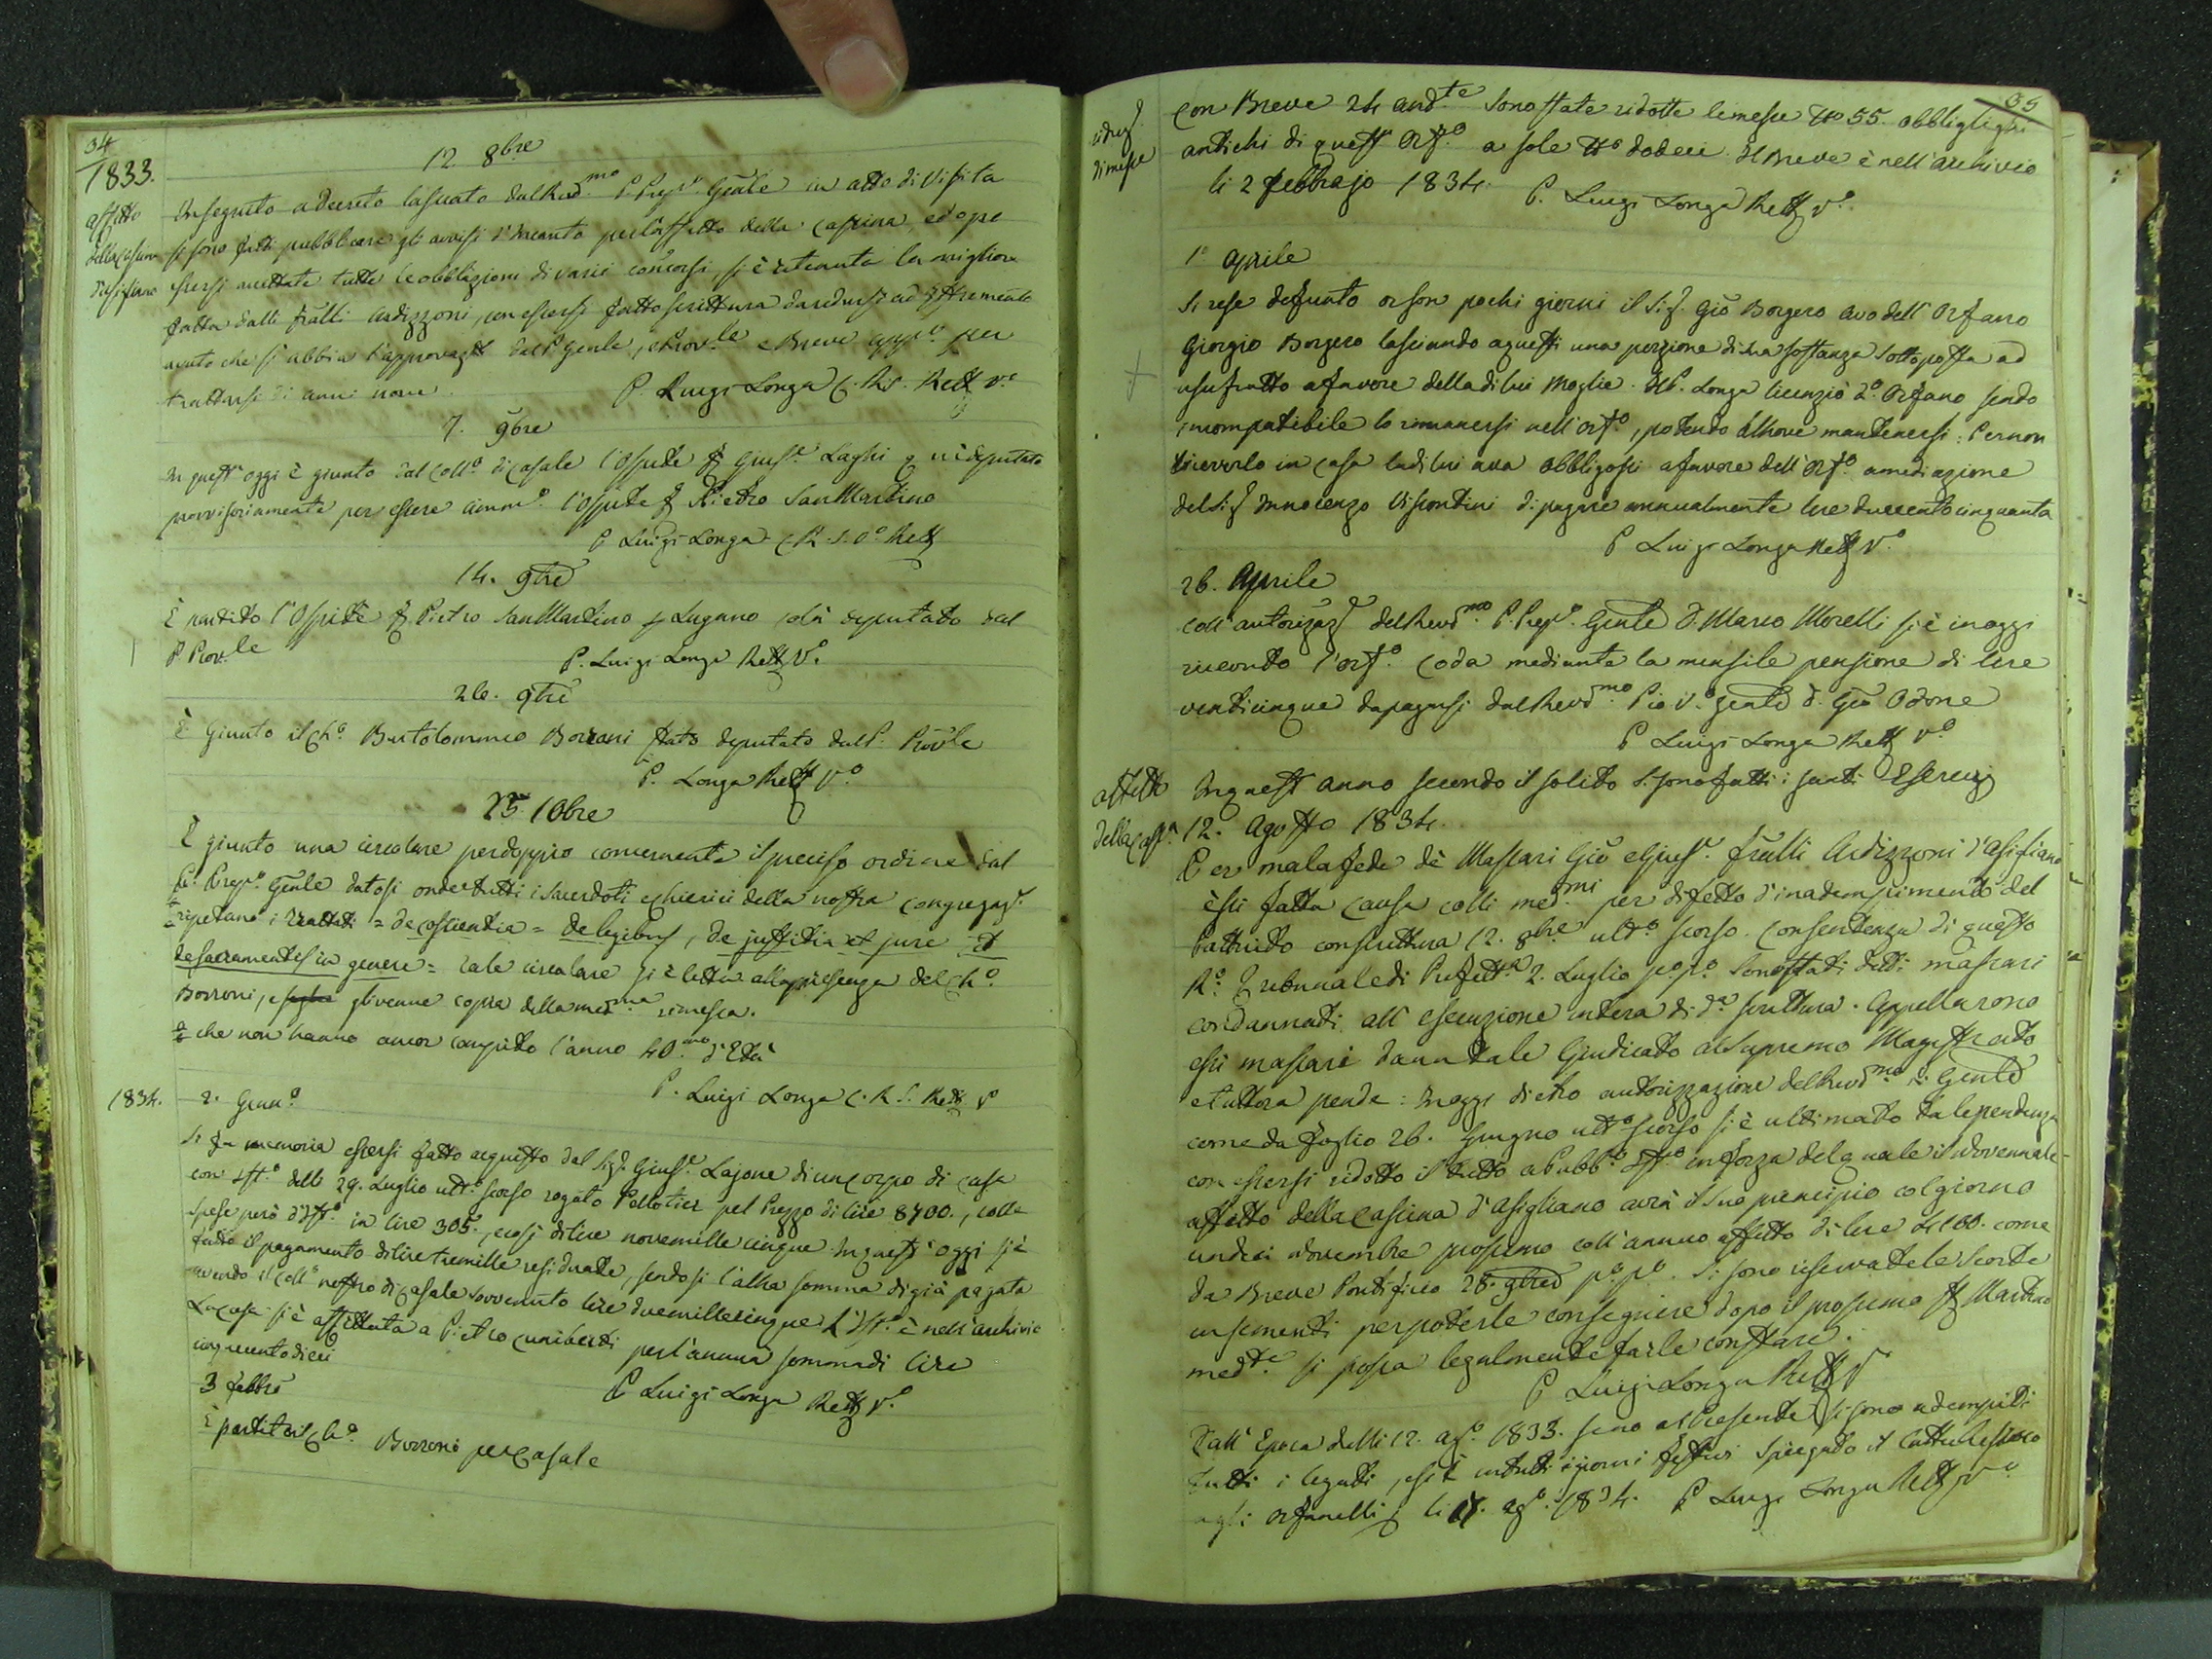 34
1833.
12. 8bre
affitto
della Cascina
d'Asigliano
In seguito a decreto lasciato dal Revd.mo P. Prep.o Gnãle in atto di Visita
si sono fatti pubblicare gli avvisi d'Incanto per l'affitto della Cascina, ed opo
essersi accettate tutte le obbligazioni di varii concorsi, si è ritenuta la migliore
fatta dalli frãlli Ardizzoni, con essersi fatto scrittura da ridursi ad Istromento
avuto che si abbia l'approvaz. dal P. Gnãle, e Prov.le e Breve app.o per
trattarsi di anni nove
P. Luigi Longa C.R.S. Rett. V.o
7. 9bre
In quest'oggi è giunto dal Coll.o di Casale l'Ospite F. Gius.e Laghi q.i deputato
provvisoriamente per essere amm.o l'Ospite F. Pietro San Martino
P. Luigi Longa C.R.S. V.o Rett.
14. 9bre
È partito l'Ospite F. Pietro San Martino p. Lugano colà deputato dal
P. Prov.le
P. Luigi Longa Rett. V.o
26. 9bre
È Giunto il Ch.o Bartolommeo Borroni stato deputato dal P. Prov.le
P. Longa Rett. V.o
25. 10bre
È giunto una circolare per doppio concernente il preciso ordine dal
P. Prep.o Gnãle datosi onde tutti i Sacerdoti e Chierici della nostra Congregaz.
ripetano i trattati = de Coscientia = de legibus, de justitia et jure = et
de Sacramentis in genere = tale circolare si è letta alla presenza del Ch.o
Borroni, e gli venne copia della med.ma rimessa.
che non hanno ancor compito l'anno 40.mo d'Età
P. Luigi Longa C.R.S. Rett. V.o
1834.
2. Genn.o
Si fa memoria essersi fatto acquisto dal Sig. Gius.e Lajone di un corpo di casa
con Ist.o delli 29. Luglio ult.o scorso rogato Pellotier pel Prezzo di lire 8700., colle
spese però d'Ist.o in lire 305., e così di lire novemille cinque. In quest'oggi si è
fatto il pagamento di lire tremille residuate, sendosi l'altra somma di già pagata
avendo il Coll.o nostro di Casale sovvenuto lire duemillecinque. L'Ist.o è nell'archivio
La casa si è affittata a Pietro Cuniberti per l'annua somma di lire
cinquecento dieci
P. Luigi Longa Rett. V.o
3 Febb.o
È partito il Ch.o Borroni per Casale
35
riduz.
di messe
Con Breve 24 and.te sono state ridotte le messe N.o 55. obbligh
antichi di quest'Orf.o a sole N.o dodeci. Il Breve è nell'archivio
li 2 Febbrajo 1834.
P. Luigi Longa Rett. V.o
1.o Aprile
Si rese defunto or son pochi giorni il Sig. Gio Borgero avo dell'Orfano
Giorgio Borgero lasciando a questi una porzione di sua sostanza sottoposta ad
usufrutto a favore della di lui Moglie. Il P. Longa licenziò d.o Orfano sendo
incompatibile lo rimanersi nell'Orf.o, potendo altrove mantenersi: Per non
riceverlo in casa la di lui ava obbligossi a favore dell'Orf.o a mediazione
del Sig. Innocenzo Viscontini di pagare annualmente lire duecentocinquanta
P. Luigi Longa Rett. V.o
26. Aprile
Coll'autorizaz. del Revd.mo P. Prep.o Gnãle D. Marco Morelli si è in oggi
ricevuto l'orf.o Coda mediante la mensile pensione di lire
venticinque da pagarsi dal Revd.mo P. V.o Gnãle D. Gio Odone
P. Luigi Longa Rett. V.o
In quest'anno secondo il solito si sono fatti i santi Esercizj
affitto
della Casc.a
12. Agosto 1834.
Per mala fede de' Massari Giõ e Gius.e frãlli Ardizzoni d'Asigliano
èssi fatta causa colli med.mi per difetto d'inadempimento del
Pattuito con scrittura 12. 8bre ult.o scorso. Con sentenza di questo
R.o Tribunale di Prefett.a 2. Luglio p.o p.o sono stati detti massari
condannati all'esecuzione intera di d.a scrittura. Appellarono
essi massari da un tale Giudicato al Supremo Magistrato
e tuttora pende: In oggi dietro autorizzazione del Revd.mo P. Gnãle
come da foglio 26. Giugno ult.o scorso si è ultimato tale pendenza
con essersi ridotto il tutto a Pubb.o Ist.o in forza del quale il novennale
affitto della Cascina d'Asigliano avrà il suo principio col giorno
undici Novembre prossimo coll'annuo affitto di lire 4100. come
da Breve Pontificio 28. 9bre p.o p.o. Si sono riservate le scorte
insementi per poterle conseguire dopo il prossimo S. Martino
med.te si possa legalmente farle constare.
P. Luigi Longa Rett. V.
Dall'Epoca delli 12. ag.o 1833. sino al Presente si sono adempiti
tutti i legati, e si è in tutti i giorni festivi spiegato il Cattechismo
agli Orfanelli li 17. ag.o 1834. P. Luigi Longa Rett. V.o